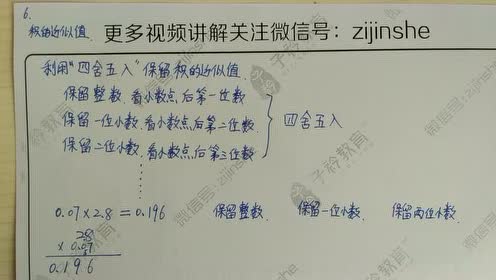 6.
积的近似值. 更多视频讲解关注微信号：zijinshe
利用“四舍五入”保留积的近似值.
保留整数. 看小数点后第一位数
保留一位小数. 看小数点后第二位数
保留二位小数. 看小数点后第三位数
四舍五入
0.07×2.8=0.196 保留整数. 保留一位小数. 保留两位小数.
2.8
× 0.07
0.196